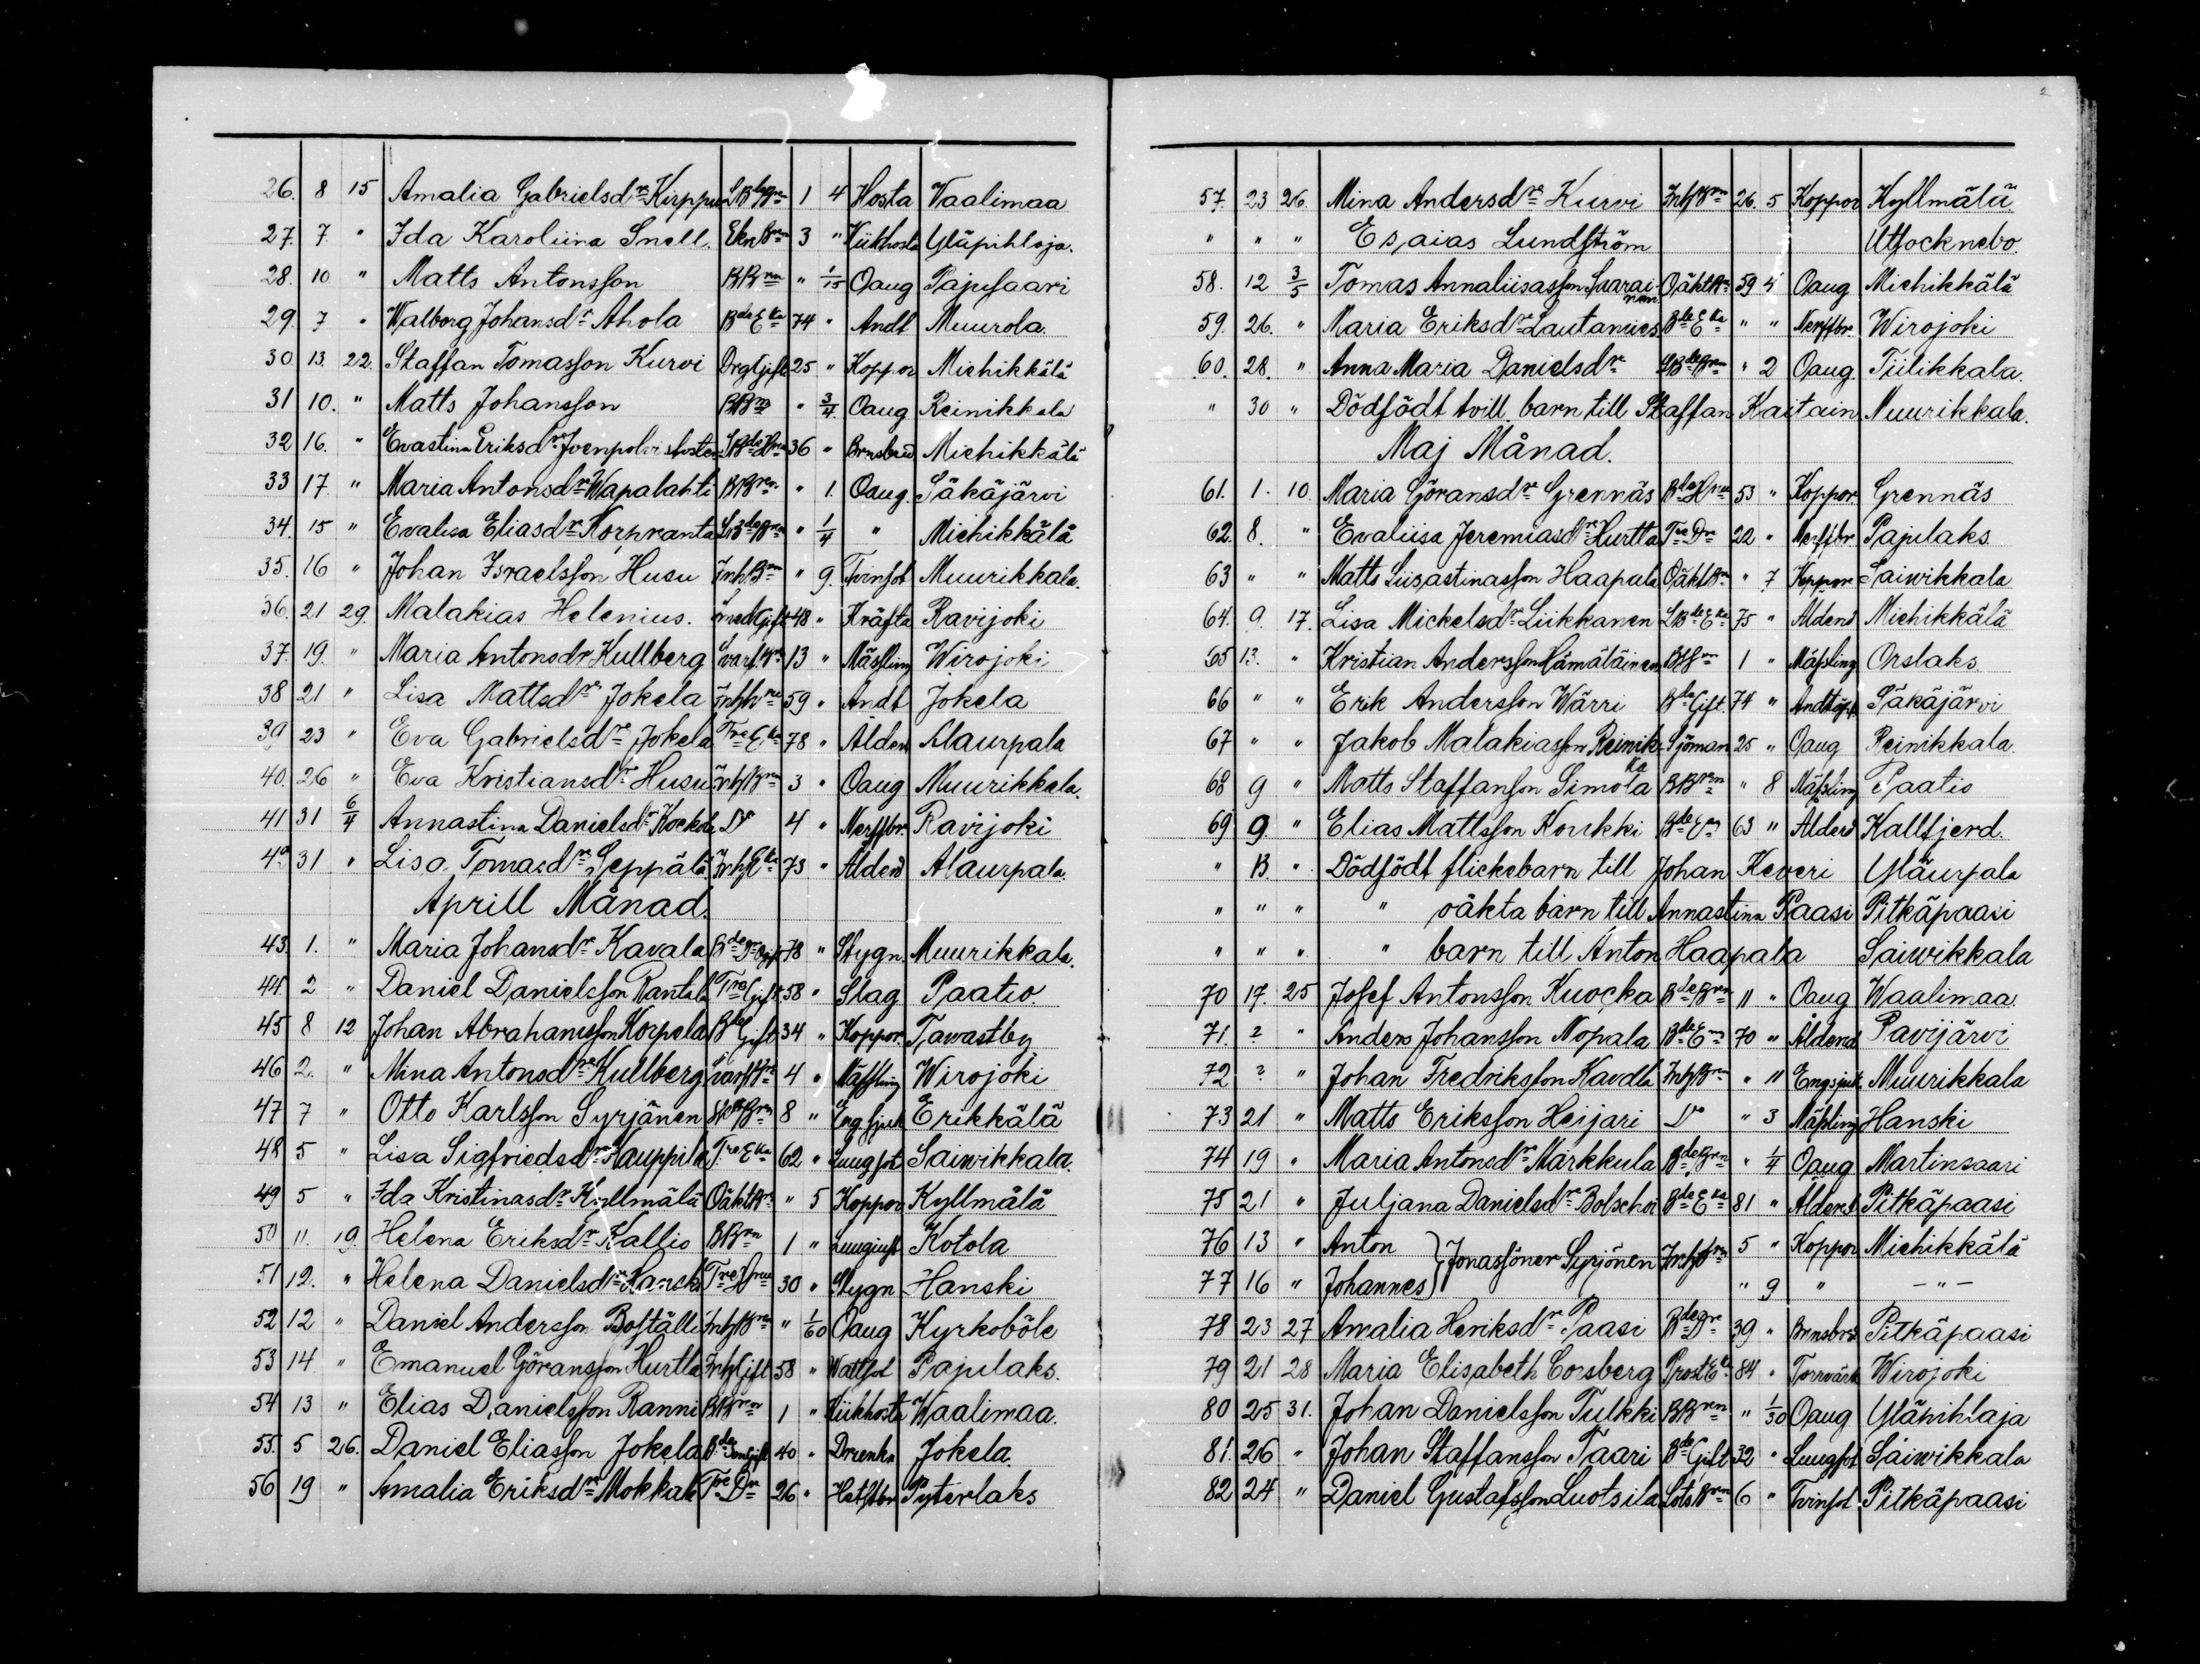 26. 8 15 Amalia Gabrielsdr Kirppu LBdeBrn 1 4 Hosta Vaalimaa
27. 7 " Ida Karoliina Snell. 3 " Kikhosta Yläpihlaja.
28. 10 " Matts Antonsson BBrn " 1/15 Oaug Pajusaari
29. 7 " Walborg Johansdr Ahola BdeEka 74 " Andt Muurola.
30 13. 22. Staffan Tomasson Kurvi DrgGift 25 " Koppor Michikkälä
31 10. " Matts Johansson BBrn " 3/4 Oaug Reinikkala
32 16. " Evastina Eriksdr 36 " Brnsbrd Michikkälä
33 17 " Maria Antonsdr Wapalahti BBrn " 1. Oaug. Säkäjärvi
34. 15 " Evalisa Eliasdr Korpranta LBdeBrn " 1/4 " Michikkälä
35. 16 " Johan Israelsson Husu InhBrn " 9. Tvinsot Muurikkala.
36. 21 29. Malakias Helenius. SmedGift 48 " Kräfta Ravijoki
37. 19. " Maria Antonsdr Kullberg 13 " Mässling Wirojoki
38 21 " Lisa Mattsdr Jokela 59 " Andt Jokela
39 23 " Eva Gabrielsdr Jokela TreEka 78 " Ålderd Alaurpala
40. 26 " Eva Kristiansdr Husu InhBrn 3 " Oaug Muurikkala.
41 31 6/4 Annastina Danielsdr Kockola Do 4 " Nerffbr. Ravijoki
42 31 " Lisa Tomasdr Seppälä InhEka 73 " Ålderd Alaurpala.
Aprill Månad.
43. 1. " Maria Johansdr Kavala 78 " Stygn. Muurikkala.
44. 2 " Daniel Danielsson Rantala TreGift 58 " Slag Paatio.
45 8 12 Johan Abrahamsson Korpela BdeGift 34 " Koppor. Tavastby
46 2. " Mina Antonsdr Kullberg 4 " Mässling Wirojoki
47 7 " Otto Karlsson Syrjänen 8 " Eng.sjuk Erikkälä
48 5 " Lisa Sigfriedsdr Kauppila TreEka 62 " Lungsot Saivikkala.
49 5 " Ida Kristinasdr Kyllmälä OäktBrn " 5 Koppor Kyllmälä
50 11. 19. Helena Eriksdr Kallio BBrn 1 " Kotola
51 12. " Helena Danielsdr Hanski TreHru 30 " Stygn Hanski
52 12 " Daniel Andersson Boställi InhBrn " 1/60 Oaug Kyrkoböle
53 14 " Emanuel Göransson Hurtta InhGift 58 " Wattsot Pajulaks.
54 13 " Elias Danielsson Ranni BBrn 1 " Kikhosta Waalimaa.
55. 5 26. Daniel Eliasson Jokela 40 " Drunkn Jokela.
56 19 " Amalia Eriksdr Mokkala TreDr 26 " Pyterlaks
57. 23 26. Mina Andersdr Kurvi InhBrn 26. 5 Koppor Kyllmälä
" " " Esaias Lundström Utsocknebo.
58. 12 3/5 Tomas Annaliisasson Saarainen OäktBrn 59 4 Oaug Michikkälä
59. 26. " Maria Eriksdr Lautamies BdeEka " " Nerffbr. Wirojoki
60. 28. " Anna Maria Danielsdr LBdeBrn " 2 Oaug. Tiilikkala.
" 30 " Dödfödt tvill. barn till Staffan Kaitain Muurikkala.
Maj Månad.
61. 1. 10. Maria Göransdr Grennäs BdeHru 53 " Koppor Grennäs
62. 8. " Evaliisa Jeremiasdr Hurtta TreDr 22 " Nerffbr Pajulaks
63 " " Matts Liisastinasson Haapala OäktBrn " 7 Koppor Saiwikkala
64. 9. 17. Lisa Mickelsdr Liikkanen LBdeEka 75 " Ålderd Michikkälä
65 13. " Kristian Andersson Hämäläinen BBrn 1 " Mässling Orslaks
66 " " Erik Andersson Wärri BdeGift. 74 " Andtäpp Säkäjärvi
67 " " Jakob Malakiasson Reinikka Sjöman 25 " Oaug Reinikkala.
68 9 " Matts Staffansson Simola BBrn " 8 Mässling Paatio
69 9 " Elias Mattsson Koukki BdeEn 63 " Ålderd Kallfjerd.
" 13. " Dödfödt flickebarn till Johan Keveri Yläurpala
" " " " oäkta barn till Annastina Paasi Pitkäpaasi
" " " " barn till Anton Haapala Saiwikkala
70 17. 25 Josef Antonsson Kuocka BdeBrn 11 " Oaug Waalimaa.
71. ? " Anders Johansson Nopala BdeEn 70 " Ålderd Pavijärvi
72 ? " Johan Fredriksson Kavala InhBrn " 11 Eng.sjuk Muurikkala
73 21 " Matts Eriksson Heijari Do " 3 Mässling Hanski
74 19 " Maria Antonsdr Markkula BdeBrn " 1/4 Oaug Martinsaari
75 21 " Juljana Danielsdr Bolschoi BdeEka 81 " Ålderd Pitkäpaasi
76 13 " Anton } Jonassöner Syrjönen InhBrn 5 " Koppor Michikkälä
77 16 " Johannes } " 9 " - " -
78 23 27 Amalia Heriksdr Paasi 39 " Brnsbrd Pitkäpaasi
79 21 28 Maria Elisabeth Corsberg ProstEka 84 " Torrvärk Wirojoki
80 25 31. Johan Danielsson Tulkki BBrn " 1/30 Oaug Yläpihlaja
81. 26 " Johan Staffansson Taari BdeGift 32 " Lungsot Saiwikkala
82 24 " Daniel Gustafsson Luotsila LotsBrn 6 " Tvinsot Pitkäpaasi